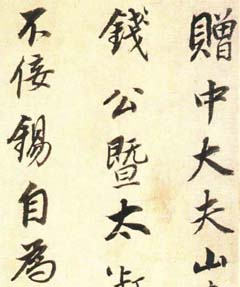 贈中大夫山
錢公暨太
不佞錫自為